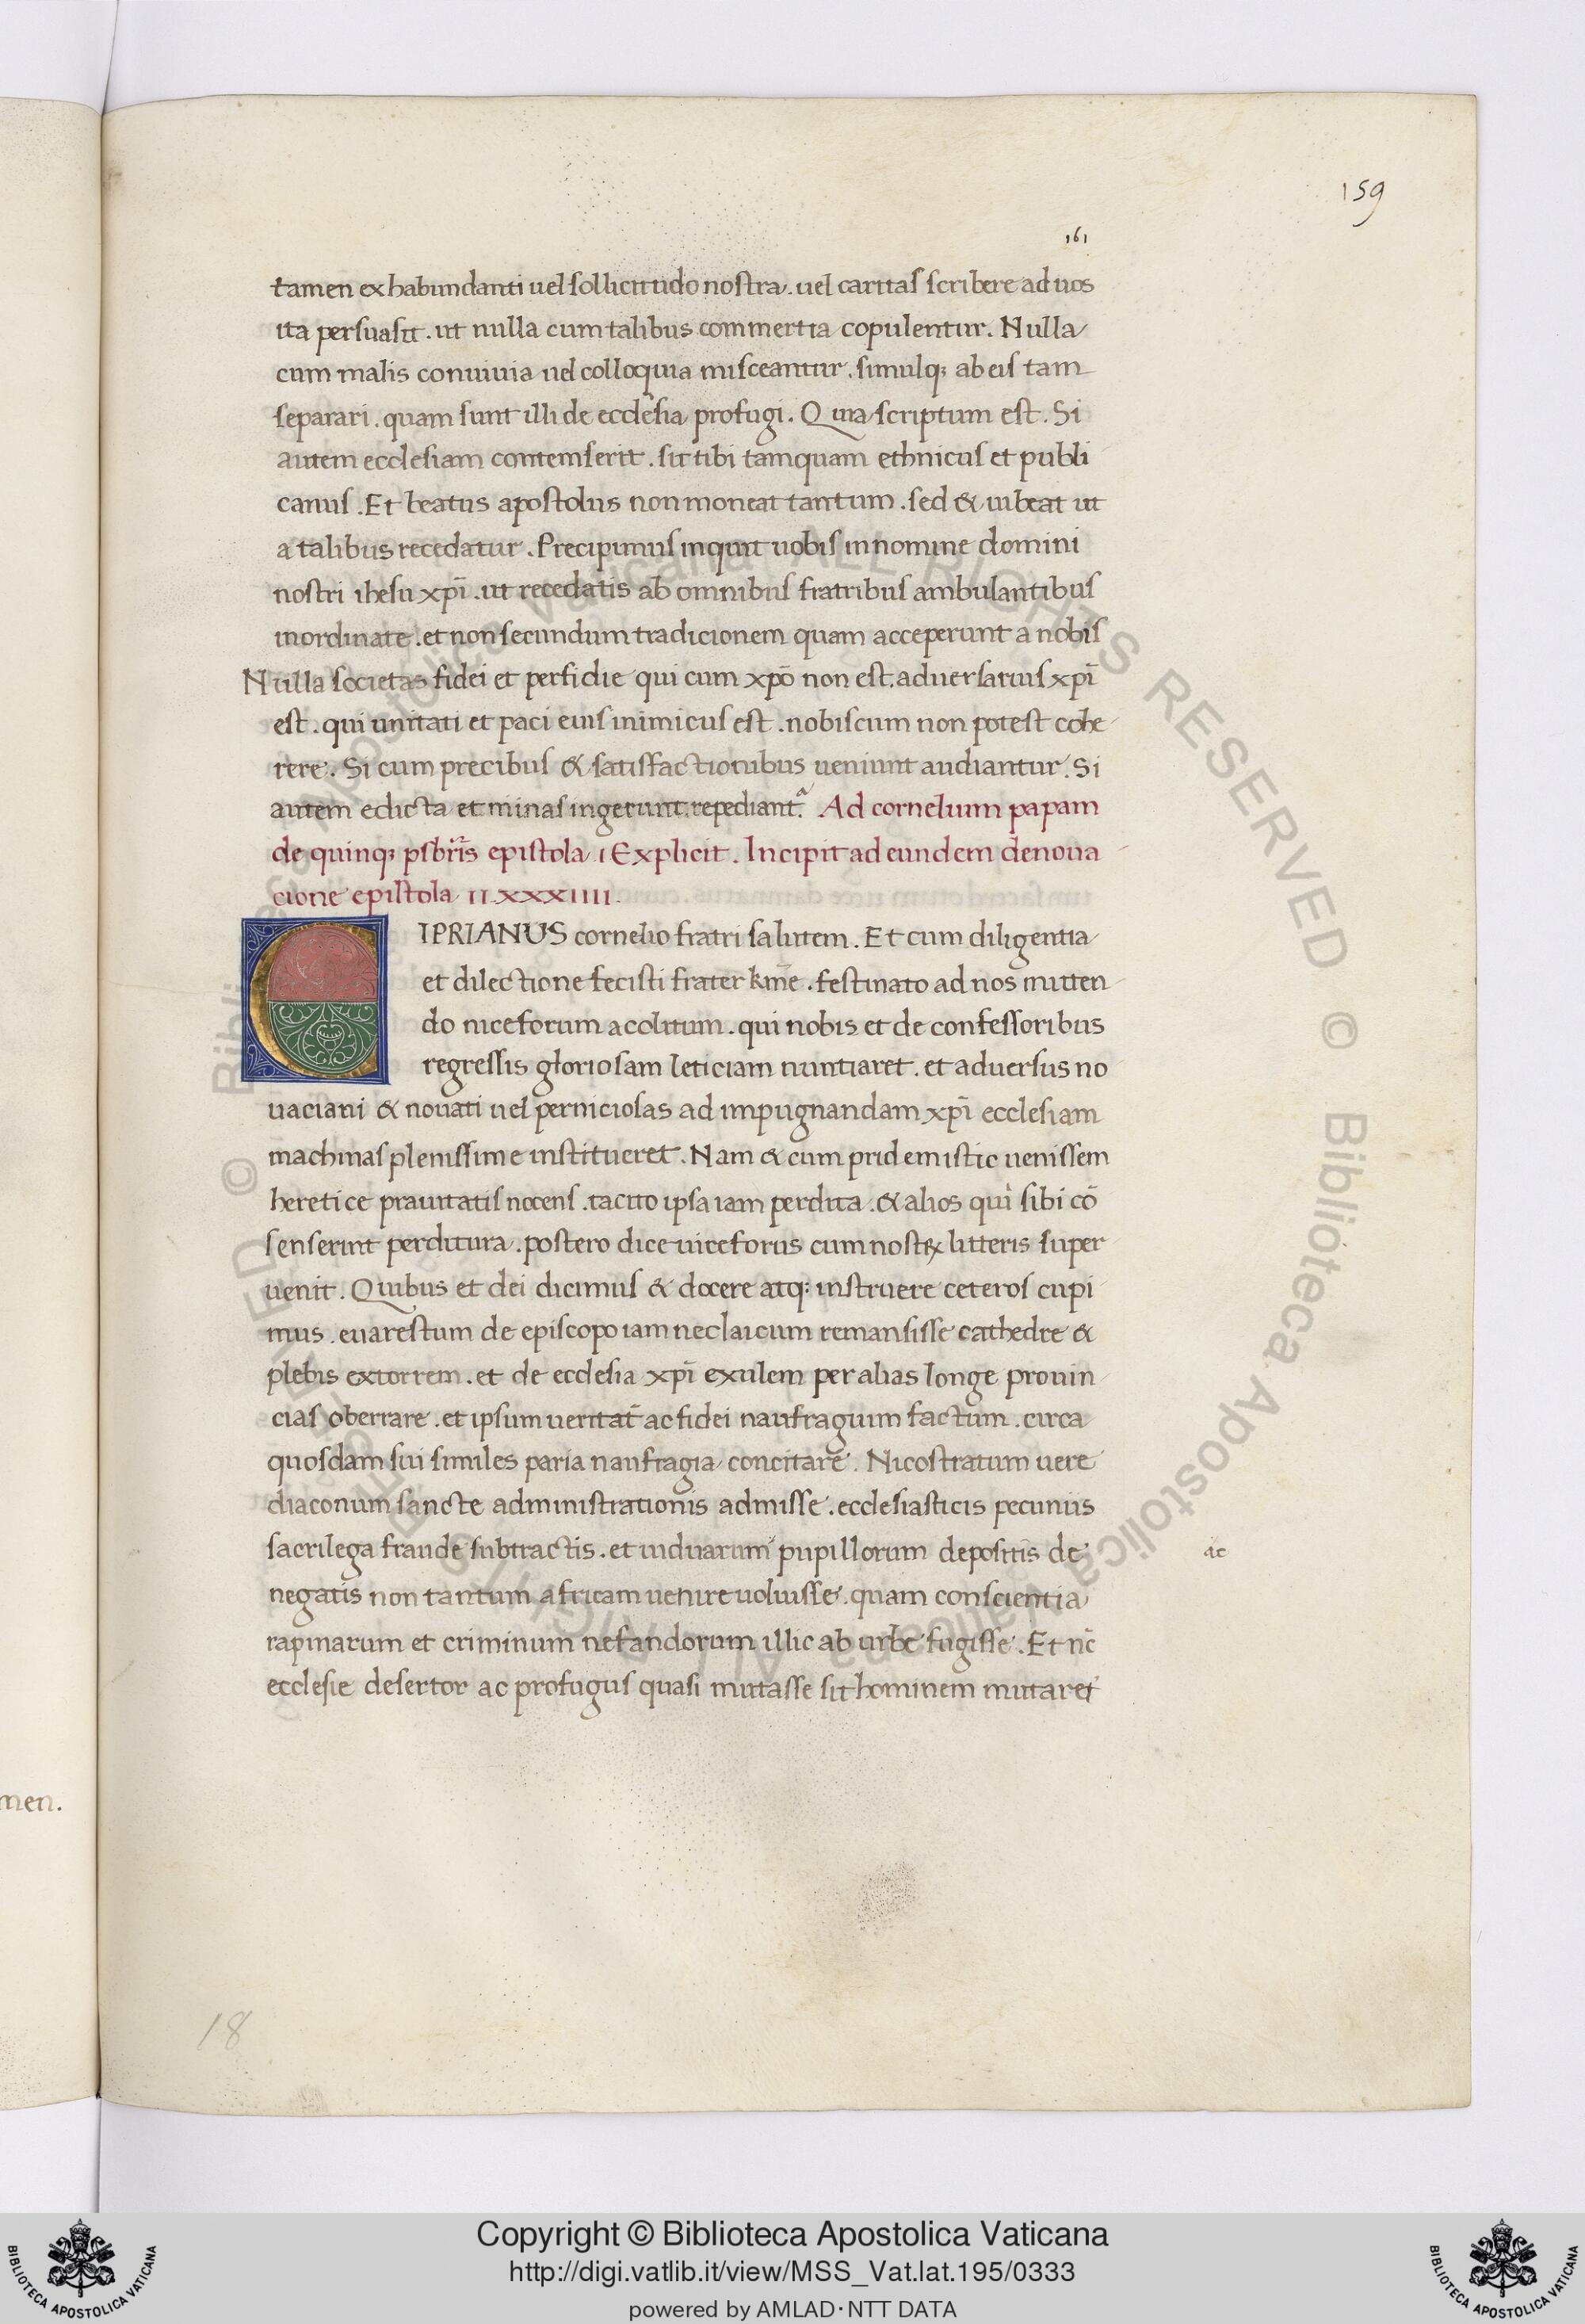 159
161
tamen ex habundanti uel sollicitudo nostra. uel caritas scribere ad uos
ita persuasit. ut nulla cum talibus commertia copulentur. Nulla
cum malis conuiuia uel colloquia misceantur. simulq; ab eis tam
separari. quam sunt illi de ecclesia profugi. Quia scriptum est. Si
autem ecclesiam contemserit. sit tibi tamquam ethnicus et publi
canus. Et beatus apostolus non moneat tantum. sed & iubeat ut
a talibus recedatur. Precipimus inquit uobis in nomine domini
nostri ihesu xpī. ut recedatis ab omnibus fratribus ambulantibus
inordinate. et non secundum tradicionem quam acceperunt a nobis
Nulla societas fidei et perfidie qui cum xpō non est. aduersarius xpī
est. qui unitati et paci eius inimicus est. nobiscum non potest cohe
rere. Si cum precibus & satisfactionibus ueniunt audiantur. Si
autem edicta et minas ingerunt. repediant. Ad cornelium papam
de quinq; psbrīs epistola. i Explicit. Incipit ad eundem de noua
cione epistola ii. xxxiiii.
CIPRIANUS cornelio fratri salutem. Et cum diligentia
et dilectione fecisti frater kme. festinato ad nos mitten
do niceforum acolitum. qui nobis et de confessoribus
regressis gloriosam leticiam nuntiaret. et aduersus no
uaciani & nouati uel perniciosas ad impugnandam xpī ecclesiam
machinas plenissime institueret. Nam & cum pridem istic uenissem
heretice prauitatis nocens. tacito ipsa iam perdita. & alios qui sibi cō
senserint perditura. postero dice uiceforus cum nostrꝝ litteris super
uenit. Quibus et dei dicimus & docere atq: instruere ceteros cupi
mus. euarestum de episcopo iam nec laicum remansisse cathedre &
plebis extorrem. et de ecclesia xpī exulem per alias longe prouin
cias oberrare. et ipsum ueritat̄ ac fidei naufragium factum. circa
quosdam sui similes paria naufragia concitare. Nicostratum uere
diaconum sancte administrationis admisse. ecclesiasticis pecuniis
sacrilega fraude subtractis. et uiduarum pupillorum depositis de
ac
negatis non tantum africam uenire uoluisse. quam conscientia
rapinarum et criminum nefandorum illic ab urbe fugisse. Et nc̄
ecclesie desertor ac profugus quasi mutasse sit hominem mutaret
men.
18
© Biblioteca Apostolica Vaticana ALL RIGHTS RESERVED © Biblioteca Apostolica Vaticana ALL RIGHTS RESERVED
BIBLIOTECA APOSTOLICA VATICANA
Copyright © Biblioteca Apostolica Vaticana
http://digi.vatlib.it/view/MSS_Vat.lat.195/0333
powered by AMLAD·NTT DATA
BIBLIOTECA APOSTOLICA VATICANA